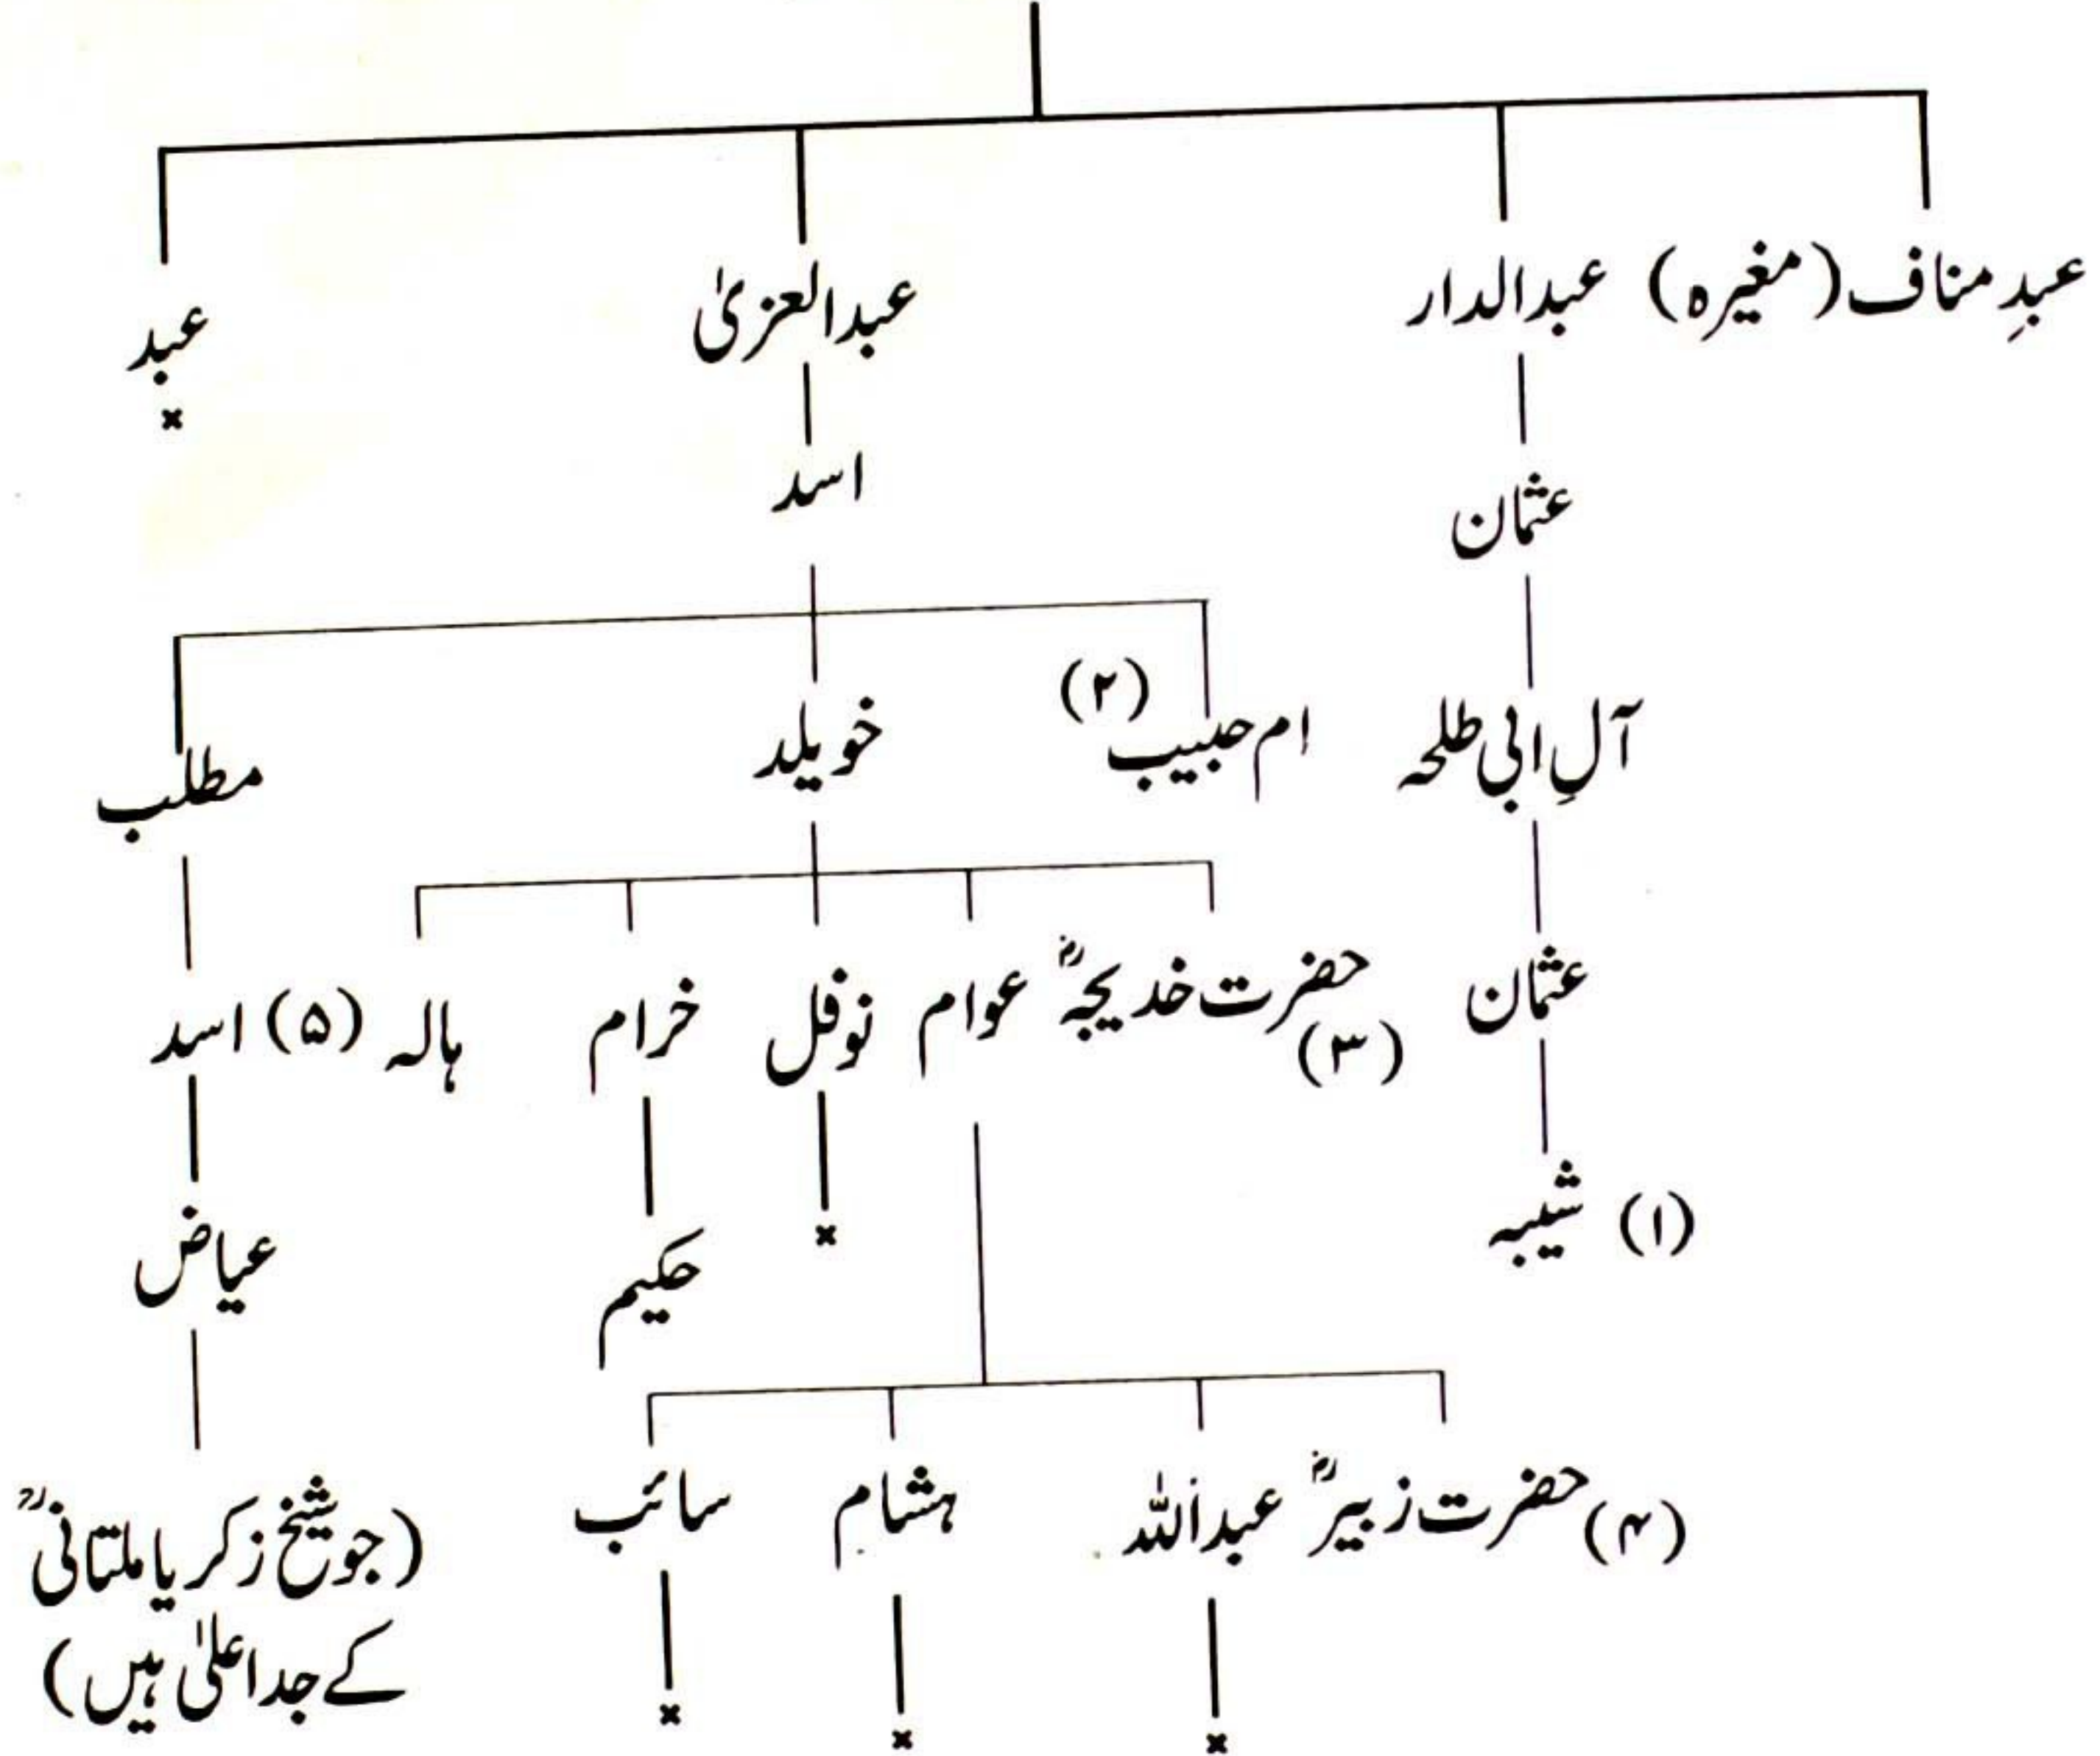 عبدِ مناف (مغیرہ) عبدالدار عبدالعزیٰ عبد
×
اسد
عثمان
آلِ ابی طلحہ ام حبیب (۲) خویلد مطلب
عثمان حضرت خدیجہؓ (۳) عوام نوفل خرام ہالہ (۵) اسد
(۱) شیبہ × حکیم عیاض
(۴) حضرت زبیرؓ عبداللہ ہشام سائب (جو شیخ زکریا ملتانیؒ
کے جد اعلیٰ ہیں)
× × ×